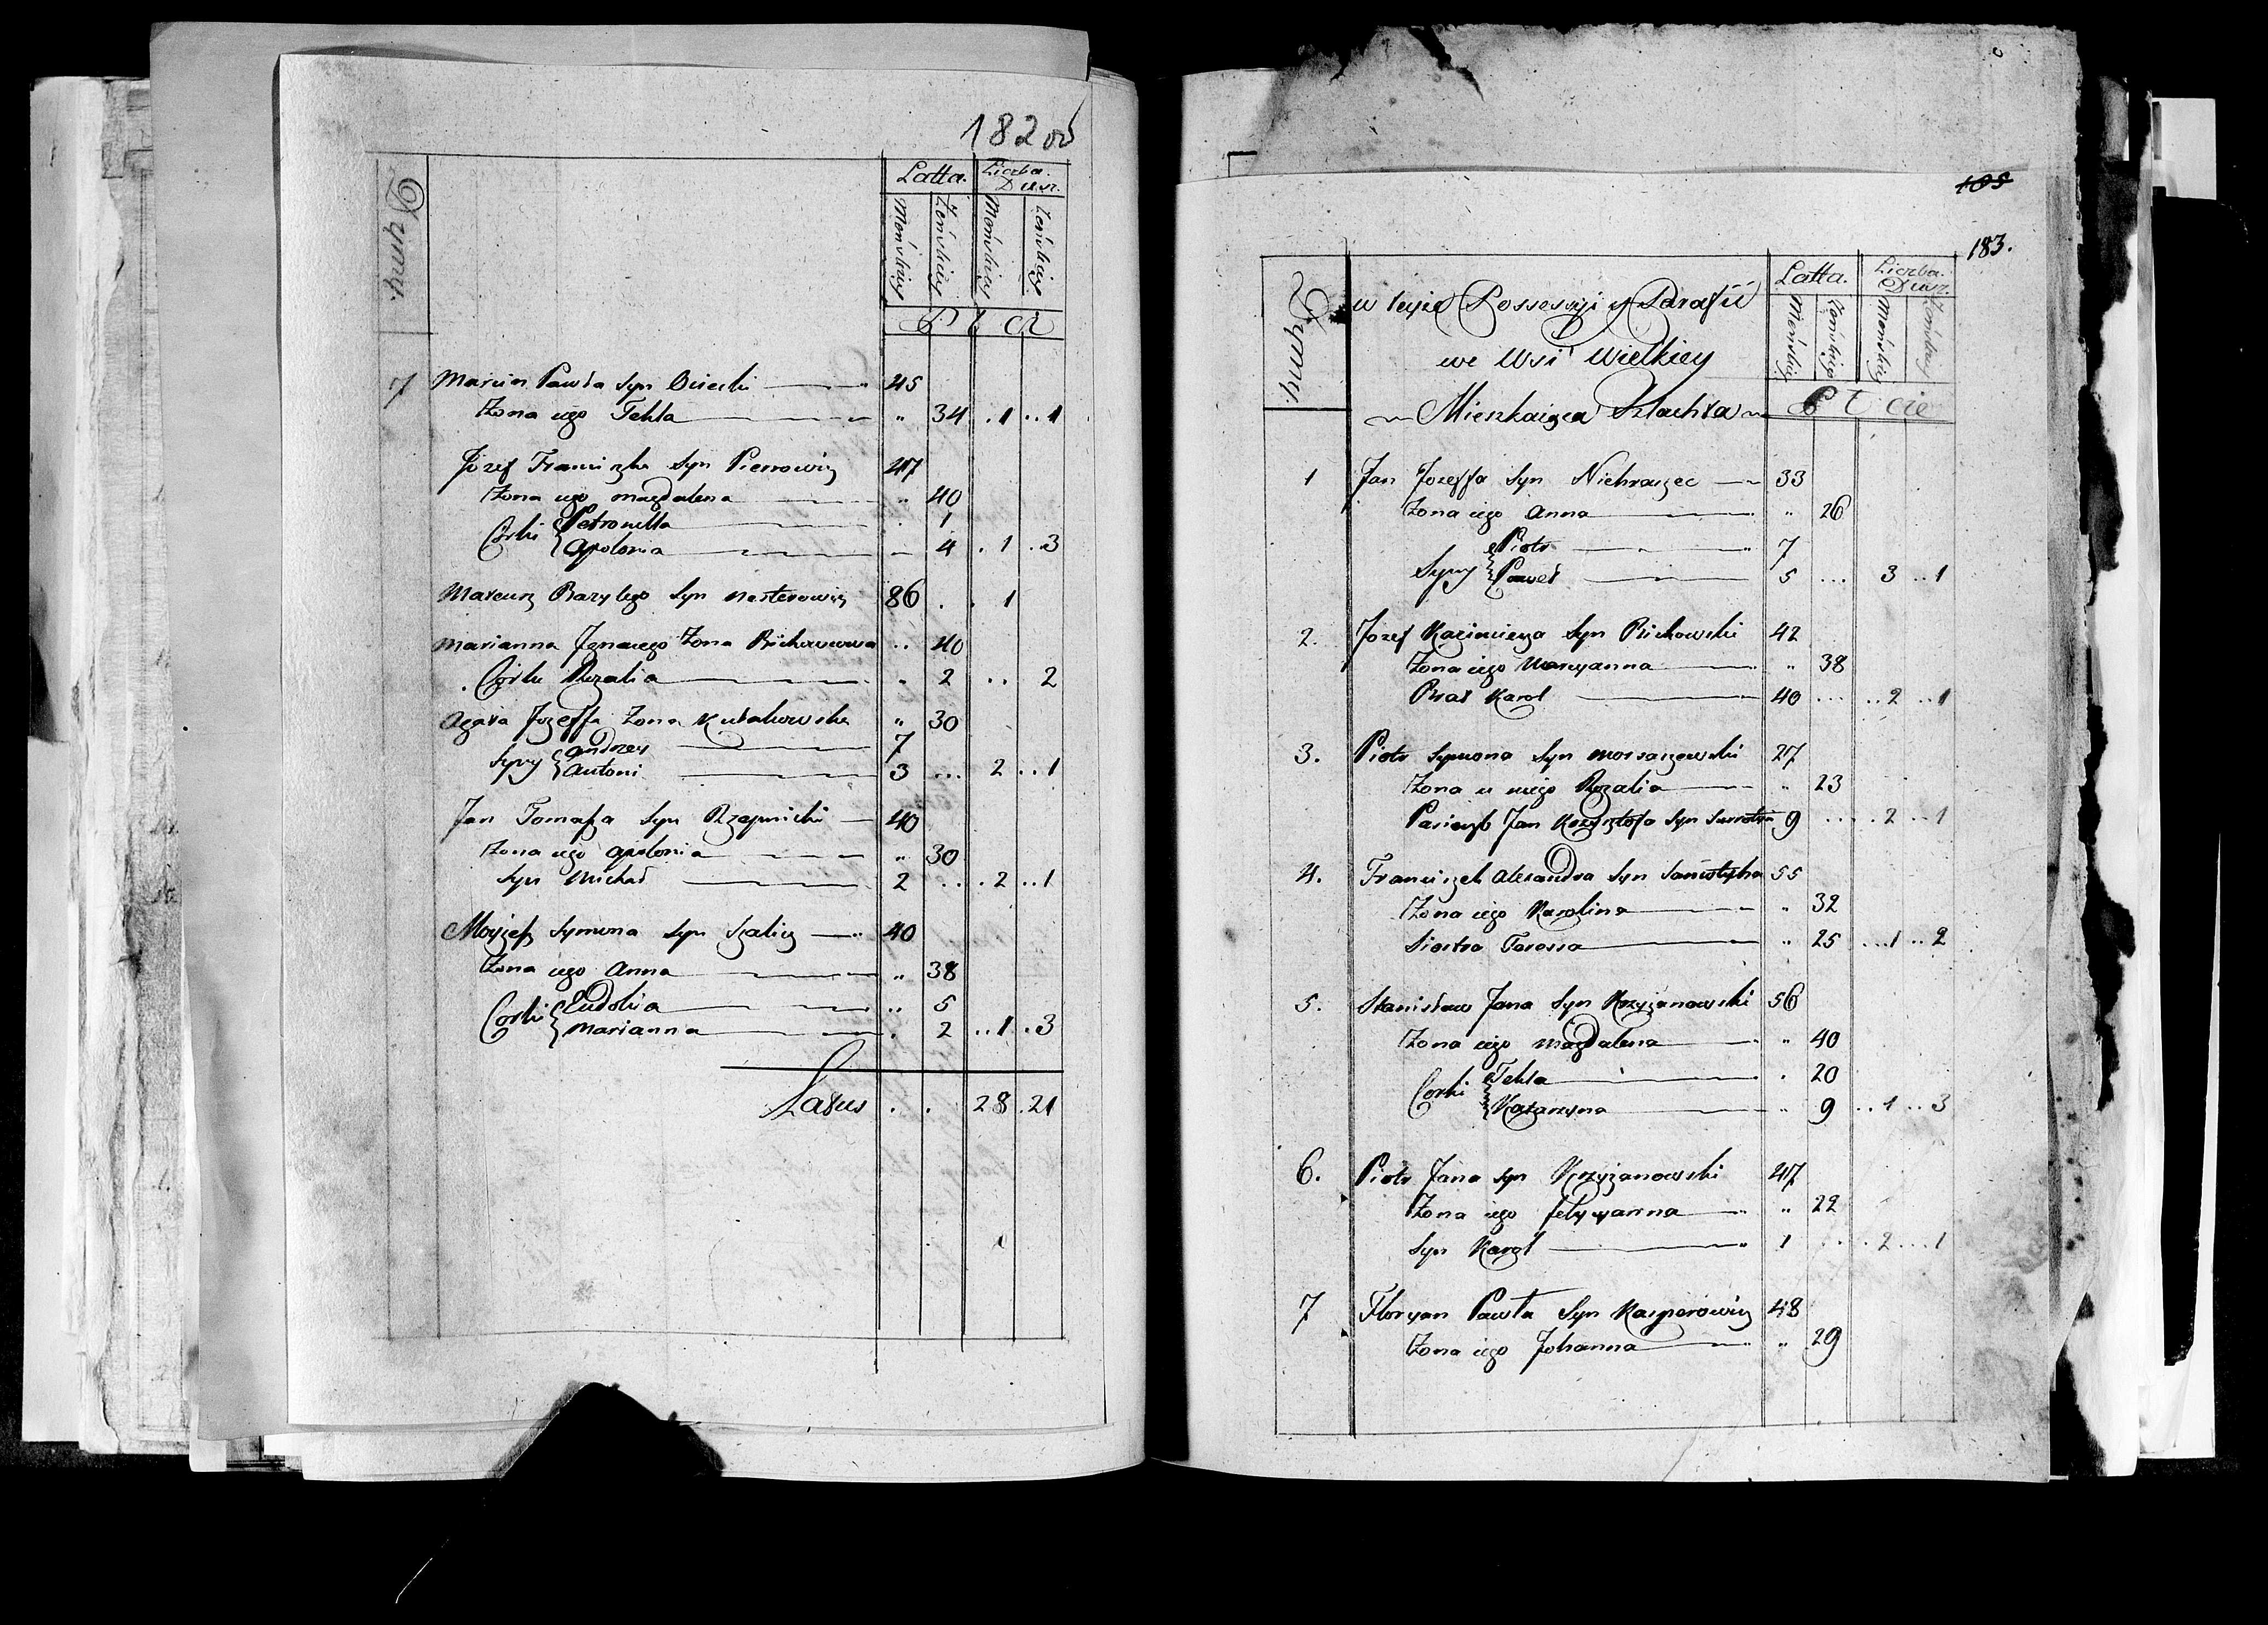 182 об
Dymy.
Latta. Liczba Dusz.
Męńskiey Żeńskiey Męńskiey Żeńskiey
P ł ci
7 Marcin Pawła Syn Osiecki 45
Żona iego Tekla " 34 . 1 .. 1
Jozef Franciszka Syn Pietrowicz 47
Żona iego Magdalena " 40
Corki Petronella . 1
Apolonia – 4 . 1 . 3
Mateusz Bazylego Syn Nesterowicz 86 . . 1
Marianna Jgnacego Żona Bichowcowa .. 40
Corka Rozalia " 2 .. 2
Agata Jozeffa Żona Kubakowska " 30
Syny Andrzey 7
Antoni 3 ... 2 .. 1
Jan Tomasza Syn Rzepnicki 40
Żona iego Apolonia " 30
Syn Michał 2 .. . 2 .. 1
Moyżesz Symona Syn Szalicz 40
Żona iego Anna " 38
Corki Eudokia .. 5
Marianna . 2 .. 1 . 3
Latus . . 28 . 21
105
183.
Dymy.
w teyże Possessyi y Parafii
we Wsi Wielkiey
Mieszkaiąca Szlachta
Latta. Liczba Dusz.
Męńskiey Żeńskiey Męńskiey Żeńskiey
P ł cie
1 Jan Jozeffa Syn 33
Żona iego Anna " 26
Syny Piotr 7
Paweł 5 ... 3 .. 1
2. Jozef Kazimierza Syn Bichowski 42
Żona iego Maryanna " 38
Brat Karol 40 ... .. 2 .. 1
3. Piotr Symona Syn 27
Żona u niego Rozalia " 23
Pasierzb Jan Krzysztofa Syn 9 ... . 2 .. 1
4. Franciszek Alexandra Syn 55
Żona iego Karolina " 32
Siostra Teressa " 25 ... 1 .. 2
5. Stanisław Jana Syn Krzyżanowski 56
Żona iego Magdalena " 40
Corki Tekla . 20
Katarzyna " 9 .. 1 .. 3
6. Piotr Jana Syn Krzyżanowski 47
Żona iego Felicyanna " 22
Syn Karol 1 ... . 2 ... 1
7 Floryan Pawła Syn Kasperowicz 48
Żona iego Johanna " 29